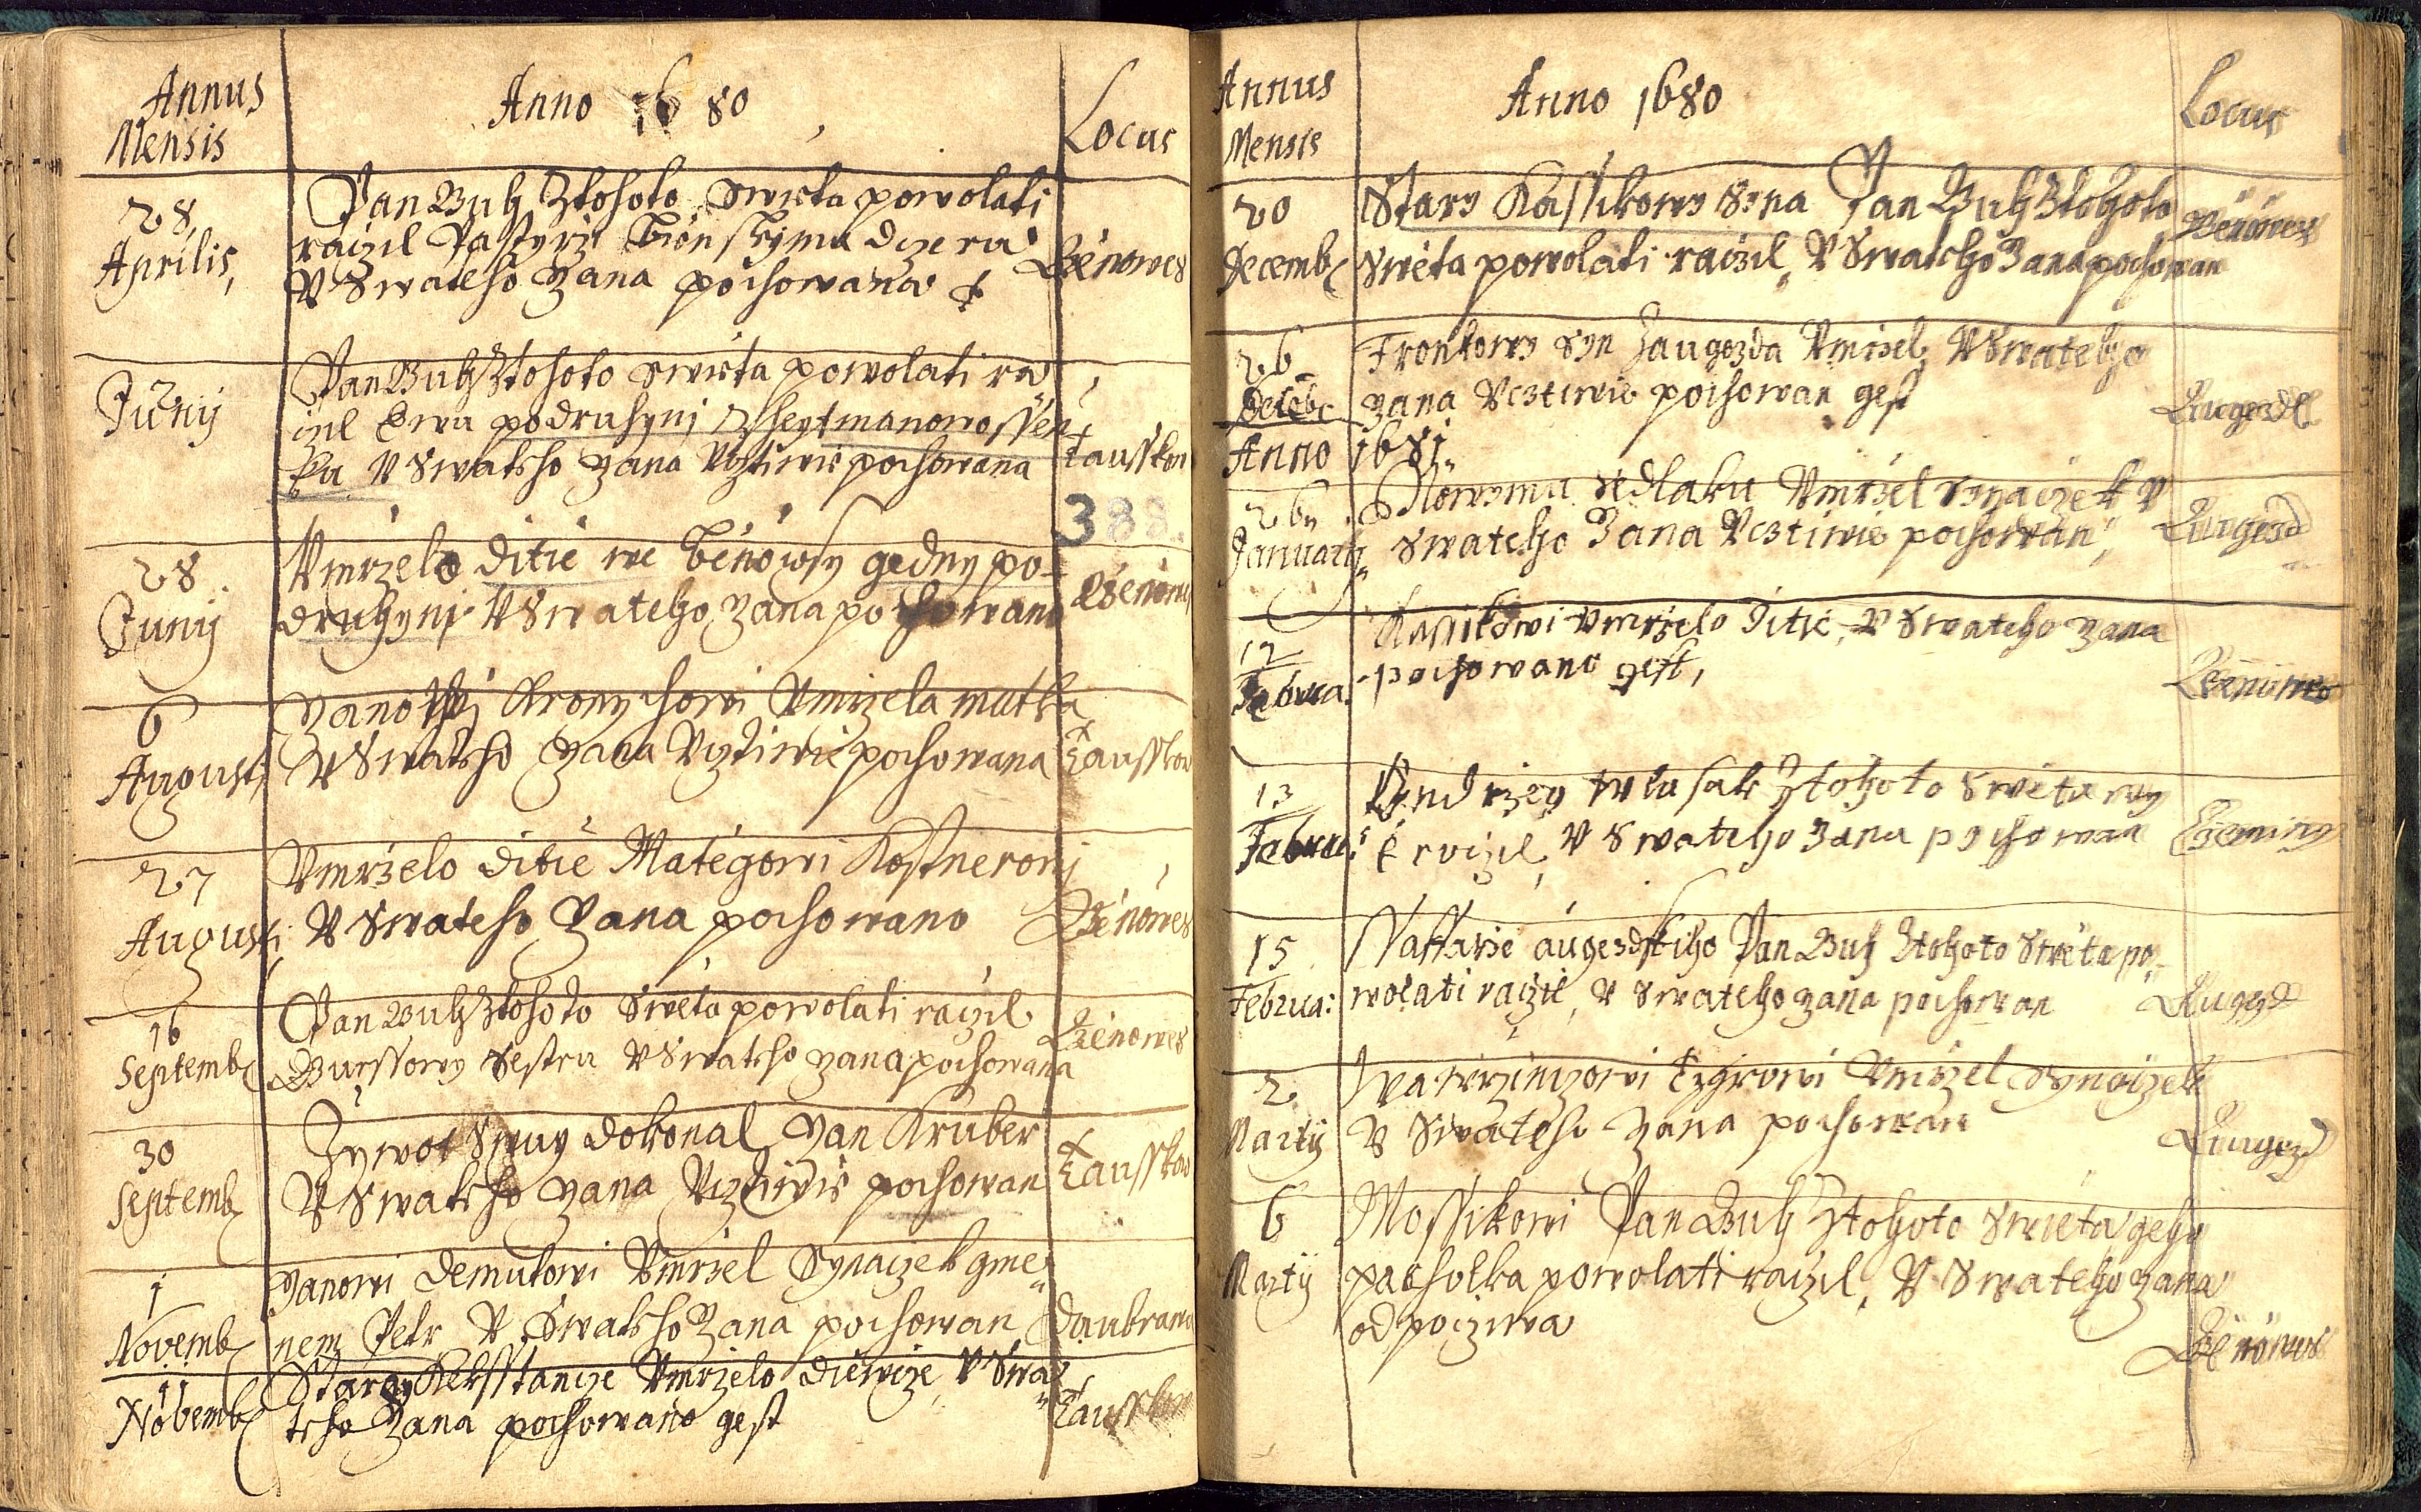 Annus
Mensis
Anno 1680
Locus
28,
Aprilis,
Pan Buh Ztohoto Swieta powolati
raczil Pastyrzi Benskymu dczeru
V Swateho Yana pochowana
Benowes
2
Juny
Pan Buh Ztohoto Swieta powolati ra
czil Ewu podruhyni
V Swateho Yana Vcztiwie pochowana
Tausskow
388.
28
Junij
Vmrzelo ditie we Benowsy gedny po-
druhyni V Swateho Yana pochowano
Benowes
6
Augusti
Vmrzela matka
V Swateho Yana Vcztiwie pochowana
Tausskow
27
Augusti
Vmrzelo ditie Mategowi Kostnerowi
V Swateho Yana pochowano
Benowes
16
Septemb
Pan Buh Ztohoto Swieta powolati raczil
Burssowy Sestru V Swateho Yana pochowana
Benowes
30
Septemb
Zywot Swuy dokonal Yan Kruber
V Swateho Yana Vcztiwie pochowan
Tausskow
1
Novemb
Yanowi Demutowi Vmrzel Synaczek gme
nem Petr V Swateho Yana pochowan
Daubrawa
11
Novemb
Vmrzelo diewcze V Swa
teho Yana pochowano gest
Tausskow
Annus
Mensis
Anno 1680
Locus
20
Decemb
Stary Kassikowy Syna Pan Buh Ztohoto
Swieta powolati raczil, V Swateho Yana pochowan
Benowes
26
Decebr
Fronkowy Syn Zaugezda Vmrzel V Swateho
Yana Vcztiwie pochowan gest
Augezd
Anno 1681
26
Januarij
Nowymu Sedlaku Vmrzel Synaczek V
Swateho Yana Vcztiwie pochowan,
Augezd
12
Februa.
Kassikowi Vmrzelo ditie, V Swateho Yana
pochowano gest,
Benowes
13
Februa:
Ondrzey Wlasak Ztohoto Swieta wy
kroczil, V Swateho Yana pochowan
15
Februa:
augezdskiho Pan Buh Ztohoto Swieta po-
wolati raczil, V Swateho Yana pochowan
Augezd
2
Martij
Wawrzinczowi Vmrzel Synaczek
V Swateho Yana pochowan
Augezd
6
Martij
Mossikowi Pan Buh Ztohoto Swieta geho
pacholka powolati raczil, V Swateho Yana
odpocziwa
Benowes